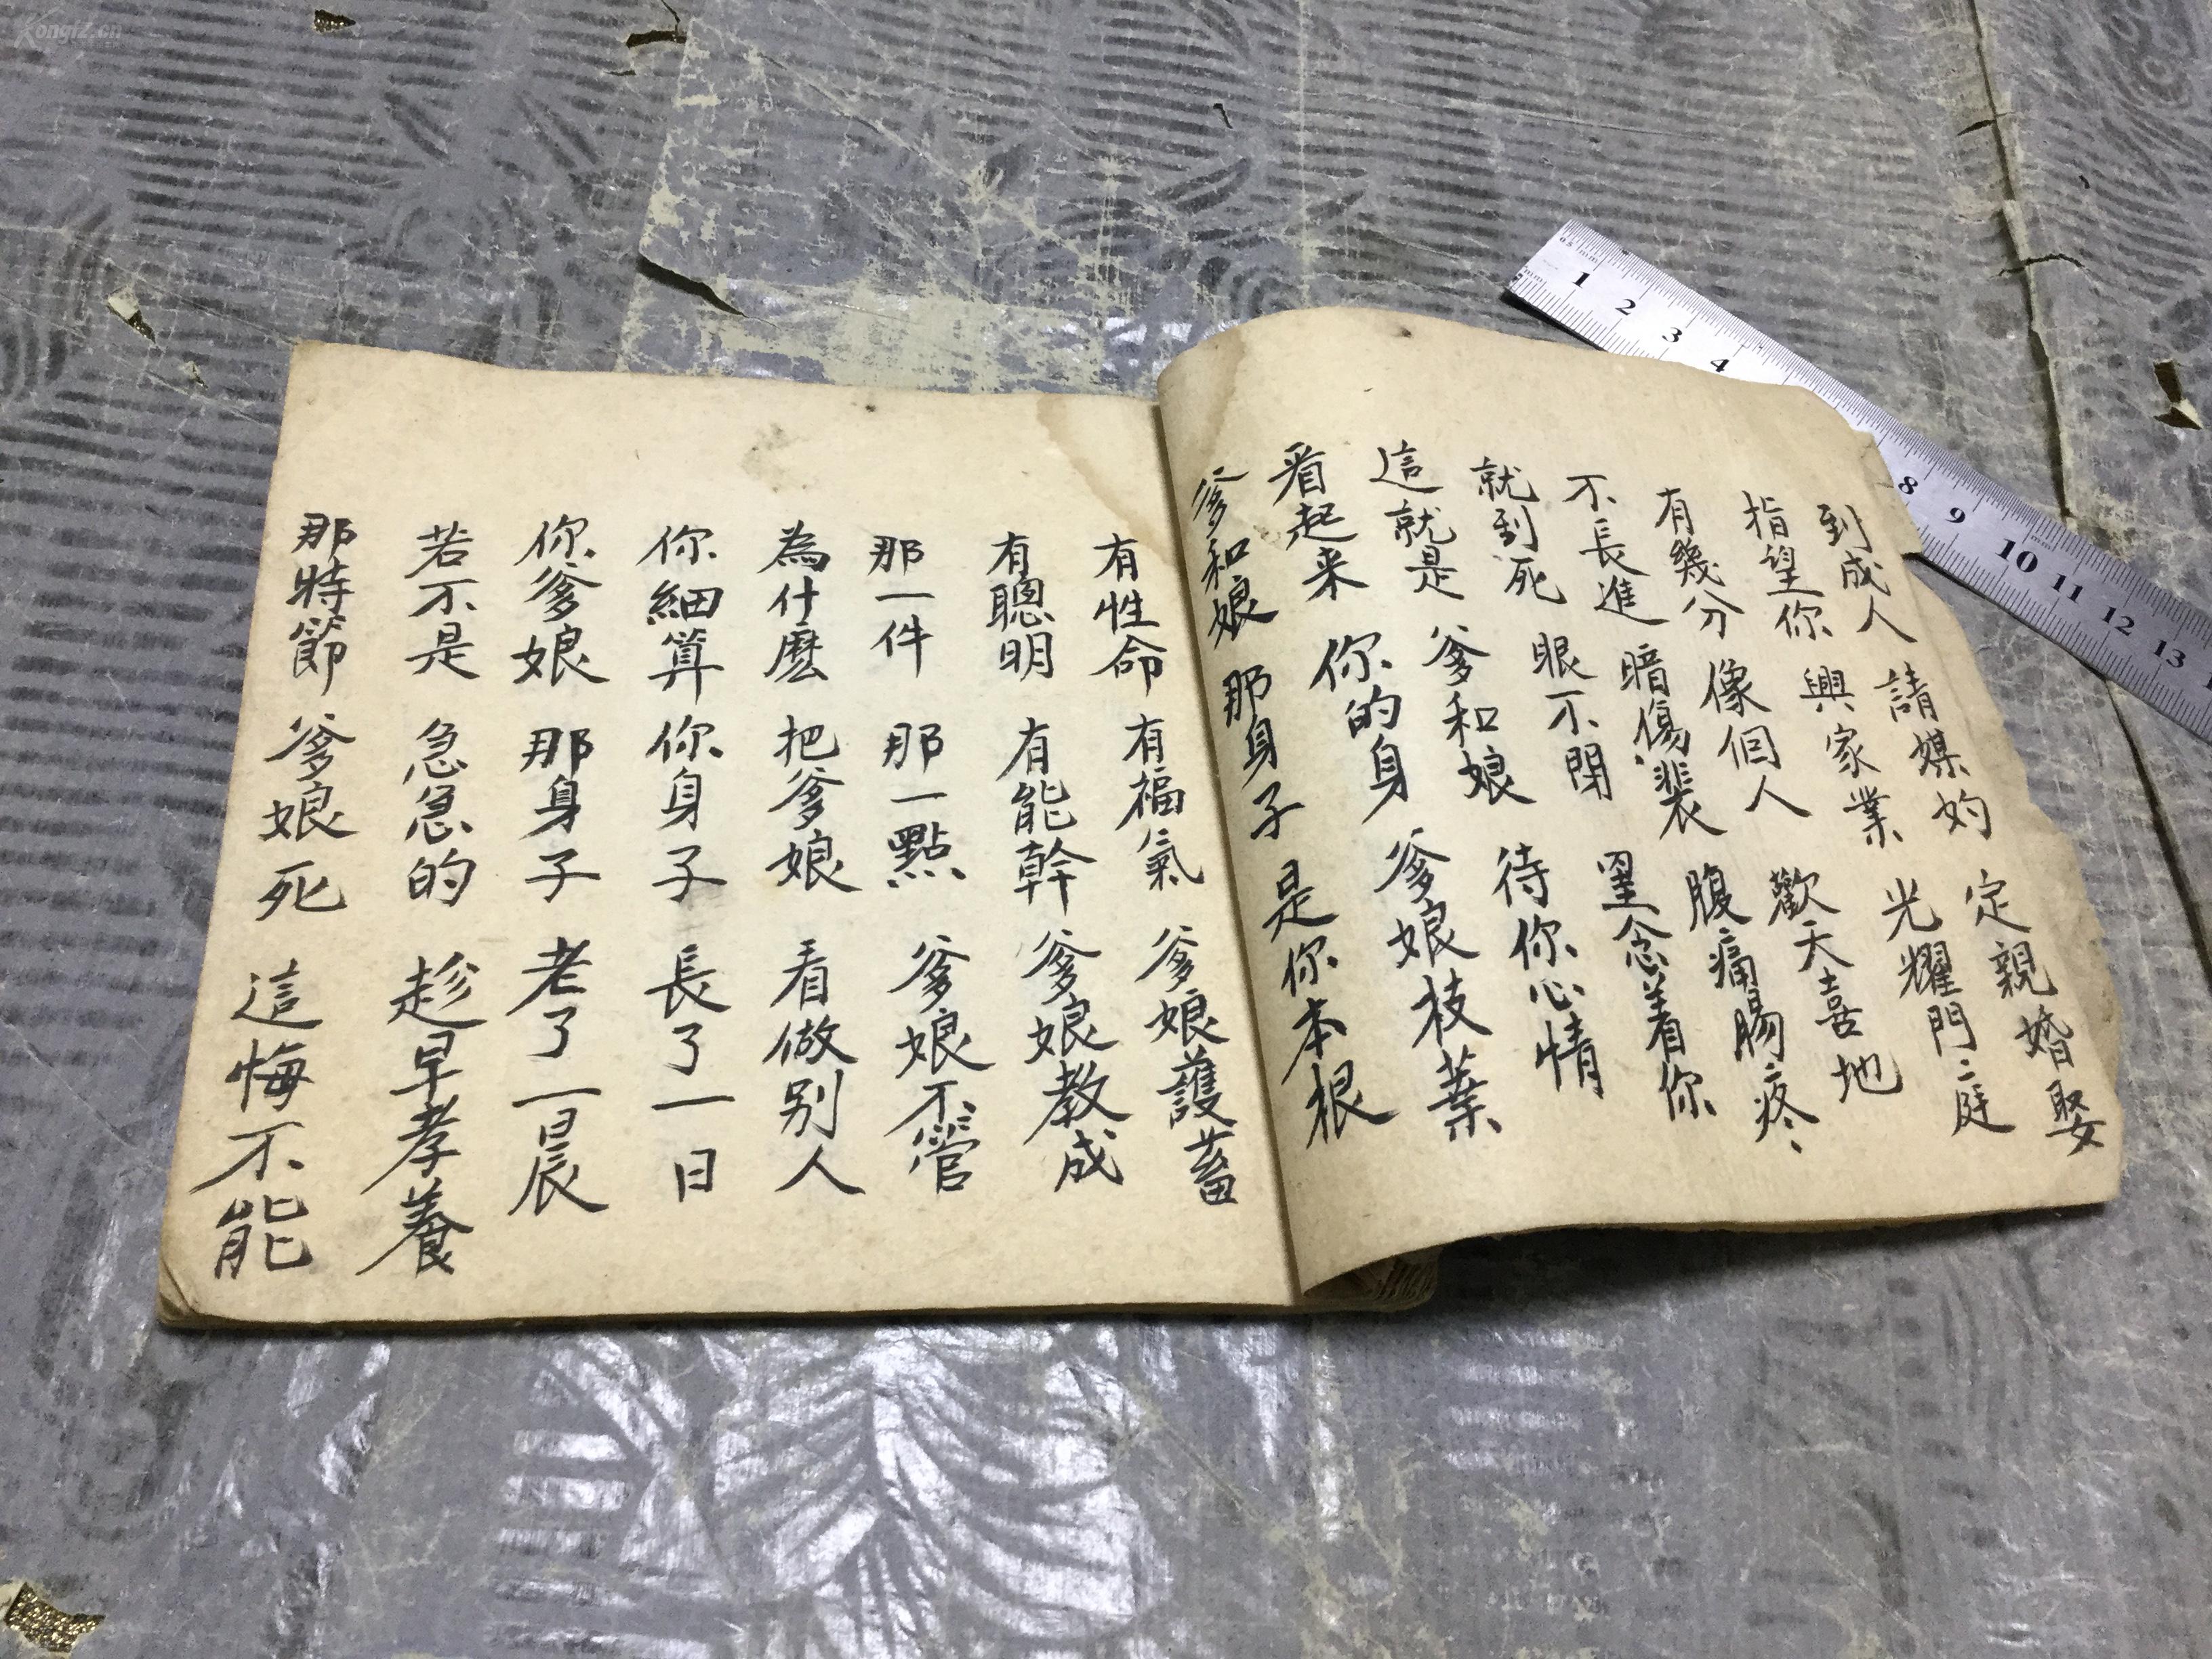 到成人 請媒妁 定親婚娶
指望你 興家業 光耀門庭
有幾分 像個人 歡天喜地
不長進 暗傷裴 腹痛腸疼
就到死 眼不閉 罣念着你
這就是 爹和娘 待你心情
看起来 你的身 爹娘枝葉
爹和娘 那身子 是你本根
有性命 有福氣 爹娘護蓄
有聰明 有能幹 爹娘教成
那一件 那一點 爹娘不管
為什麽 把爹娘 看做别人
你細算 你身子 長了一日
你爹娘 那身子 老了一晨
若不是 急急的 趁早孝養
那時節 爹娘死 這悔不能
1 2 3 4 8 9 10 11 12 13
Kongfz.cn